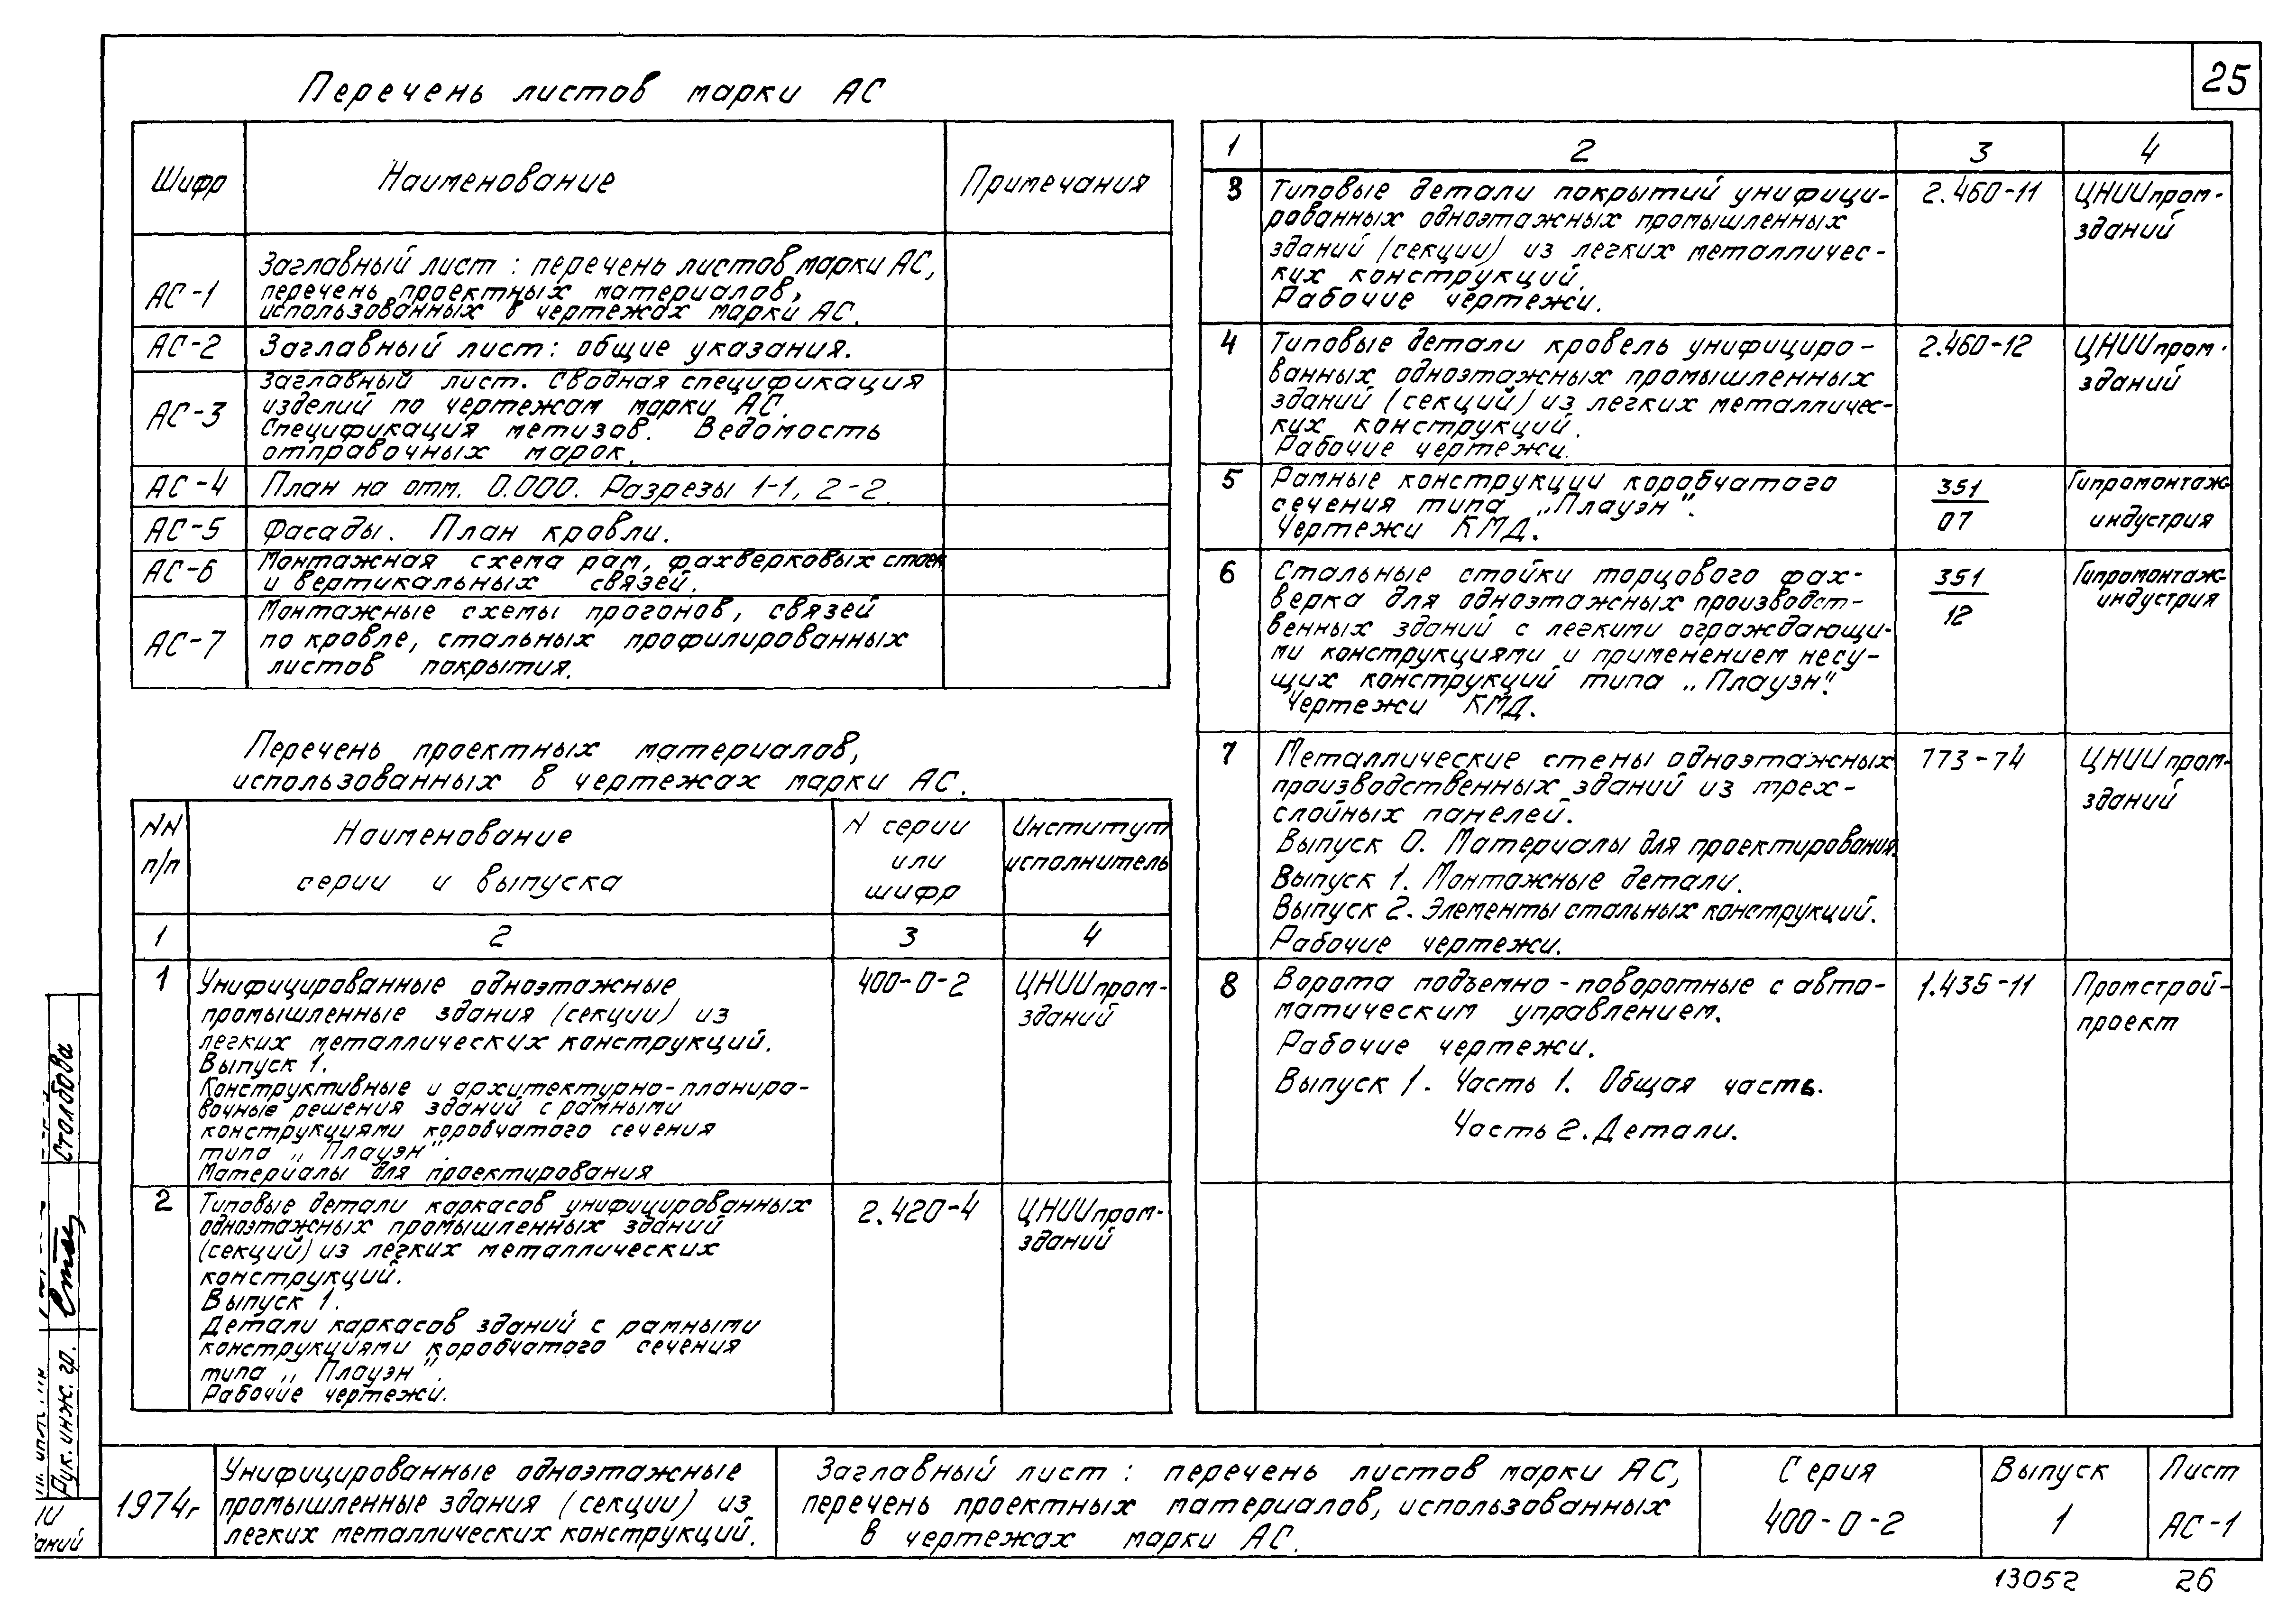 25
Перечень листов марки АС
Шифр
Наименование
Примечания
АС-1
Заглавный лист: перечень листов марки АС,
перечень проектных материалов,
использованных в чертежах марки АС.
АС-2
Заглавный лист: общие указания.
АС-3
Заглавный лист. Сводная спецификация
изделий по чертежам марки АС.
Спецификация метизов. Ведомость
отправочных марок.
АС-4
План на отм. 0.000. Разрезы 1-1, 2-2.
АС-5
Фасады. План кровли.
АС-6
Монтажная схема рам, фахверковых стоек
и вертикальных связей.
АС-7
Монтажные схемы прогонов, связей
по кровле, стальных профилированных
листов покрытия.
Перечень проектных материалов,
использованных в чертежах марки АС.
NN
п/п
Наименование
серии и выпуска
N серии
или
шифр
Институт
исполнитель
1
2
3
4
1
Унифицированные одноэтажные
промышленные здания (секции) из
легких металлических конструкций.
Выпуск 1.
Конструктивные и архитектурно-планиро-
вочные решения зданий с рамными
конструкциями коробчатого сечения
типа „Плауэн".
Материалы для проектирования
400-0-2
ЦНИИпром-
зданий
2
Типовые детали каркасов унифицированных
одноэтажных промышленных зданий
(секций) из легких металлических
конструкций.
Выпуск 1.
Детали каркасов зданий с рамными
конструкциями коробчатого сечения
типа „Плауэн".
Рабочие чертежи.
2.420-4
ЦНИИпром-
зданий
1
2
3
4
3
Типовые детали покрытий унифици-
рованных одноэтажных промышленных
зданий (секции) из легких металличес-
ких конструкций.
Рабочие чертежи.
2.460-11
ЦНИИпром-
зданий
4
Типовые детали кровель унифициро-
ванных одноэтажных промышленных
зданий (секций) из легких металличес-
ких конструкций.
Рабочие чертежи.
2.460-12
ЦНИИпром-
зданий
5
Рамные конструкции коробчатого
сечения типа „Плауэн".
Чертежи КМД.
351
07
Гипромонтаж-
индустрия
6
Стальные стойки торцового фах-
верка для одноэтажных производст-
венных зданий с легкими ограждающи-
ми конструкциями и применением несу-
щих конструкций типа „Плауэн".
Чертежи КМД.
351
12
Гипромонтаж-
индустрия
7
Металлические стены одноэтажных
производственных зданий из трех-
слойных панелей.
Выпуск 0. Материалы для проектирования.
Выпуск 1. Монтажные детали.
Выпуск 2. Элементы стальных конструкций.
Рабочие чертежи.
773-74
ЦНИИпром-
зданий
8
Ворота подъемно-поворотные с авто-
матическим управлением.
Рабочие чертежи.
Выпуск 1. Часть 1. Общая часть.
Часть 2. Детали.
1.435-11
Промстрой-
проект
Столбова
Рук. инж. гр.
1974г
Унифицированные одноэтажные
промышленные здания (секции) из
легких металлических конструкций.
Заглавный лист: перечень листов марки АС,
перечень проектных материалов, использованных
в чертежах марки АС.
Серия
400-0-2
Выпуск
1
Лист
АС-1
13052
26